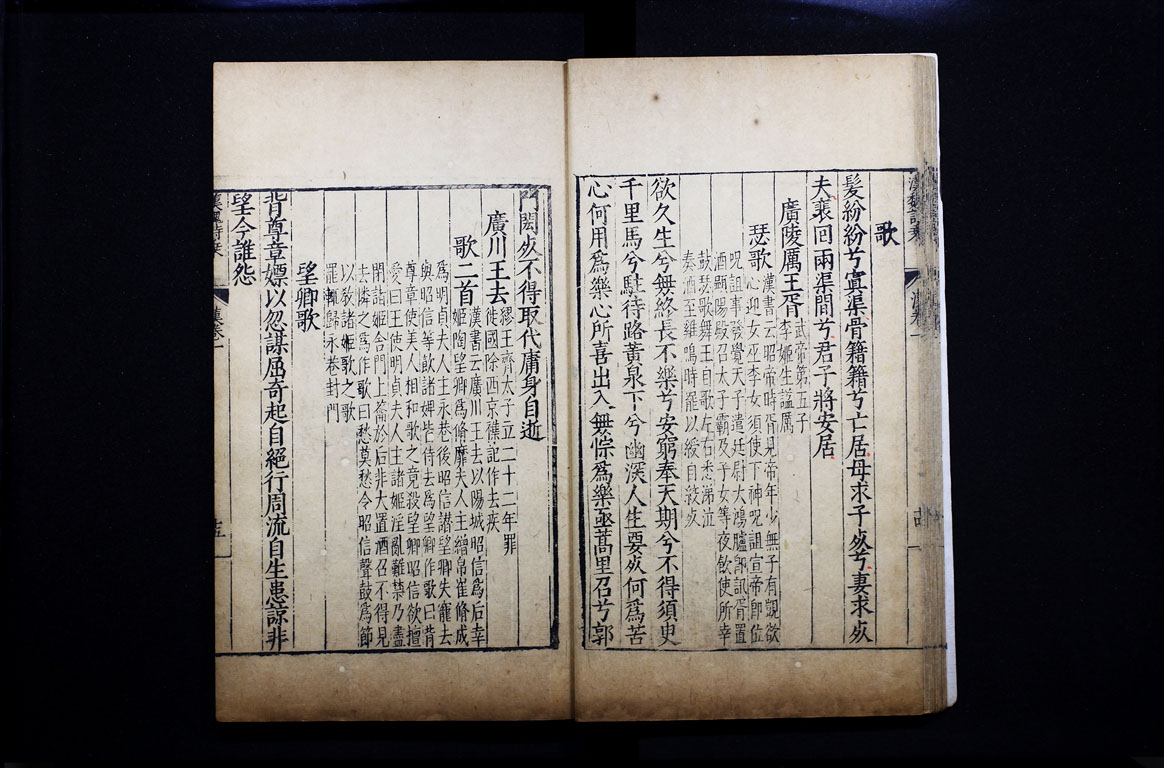 歌
髮紛紛兮寘渠骨籍籍兮亡居母求子死兮妻求死
夫裵回兩渠間兮君子將安居
廣陵厲王胥
武帝第五子
李姬生諡厲
瑟歌
漢書云昭帝時胥見帝年少無子有覬欲
心迎女巫李女須使下神呪詛宣帝即位
呪詛事發覺天子遣廷尉大鴻臚即訊胥置
酒顯陽殿召太子霸及子女等夜飲使所幸
鼓瑟歌舞王自歌左右悉涕泣
奏酒至雞鳴時罷以綬自絞死
欲久生兮無終長不樂兮安窮奉天期兮不得須臾
千里馬兮駐待路黃泉下兮幽深人生要死何爲苦
心何用爲樂心所喜出入無悰爲樂亟蒿里召兮郭
門閱死不得取代庸身自逝
廣川王去
繆王齊太子立二十二年罪
徙國除西京襍記作去疾
歌二首
漢書云廣川王去以陽城昭信爲后幸
姬陶望卿爲脩靡夫人主繒帛崔脩成
爲明貞夫人主永巷後昭信譖望卿失寵去
與昭信等飲諸婢皆侍去爲望卿作歌曰背
尊章使美人相和歌之竟殺望卿昭信欲擅
愛曰王使明貞夫人主諸姬淫亂難禁乃盡
閉諸姬舍門上籥於后非大置酒召不得見
去憐之爲作歌曰愁莫愁令昭信聲鼓爲節
以敎諸姬歌之歌
罷輒歸永巷封門
望卿歌
背尊章嫖以忽謀屈奇起自絕行周流自生患諒非
望今誰怨